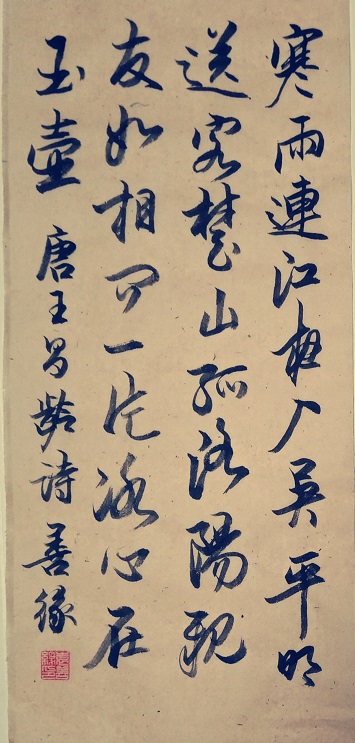 寒雨連江夜入吳平明
送客楚山孤洛陽親
友如相問一片冰心在
玉壺 唐王昌齡詩 善緣